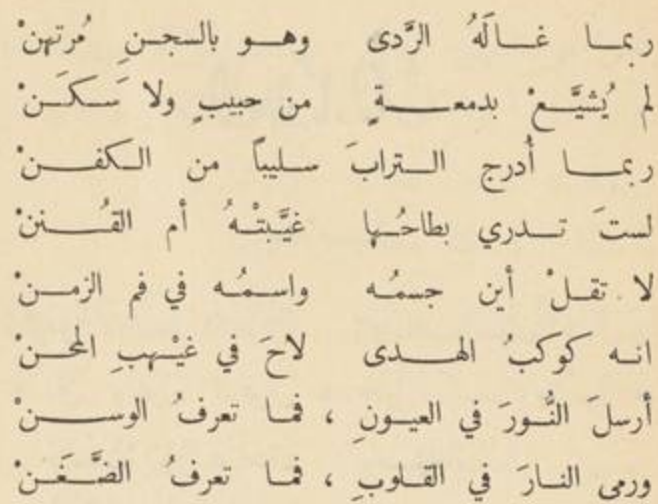 ربما غالَهُ الرَّدى وهو بالسجنِ مُرتهنْ
لم يُشيَّعْ بدمعةٍ من حبيبٍ ولا سَكَنْ
ربما أُدرج الترابَ سليباً من الكفنْ
لستَ تدري بطاحُها غيَّبتْهُ أم القُننْ
لا تقلْ أين جسمُه واسمُه في فم الزمنْ
انه كوكبُ الهدى لاحَ في غيْهبِ المحنْ
أرسلَ النُّورَ في العيونِ ، فما تعرفُ الوسنْ
ورمى النارَ في القلوبِ ، فما تعرفُ الضَّغَنْ